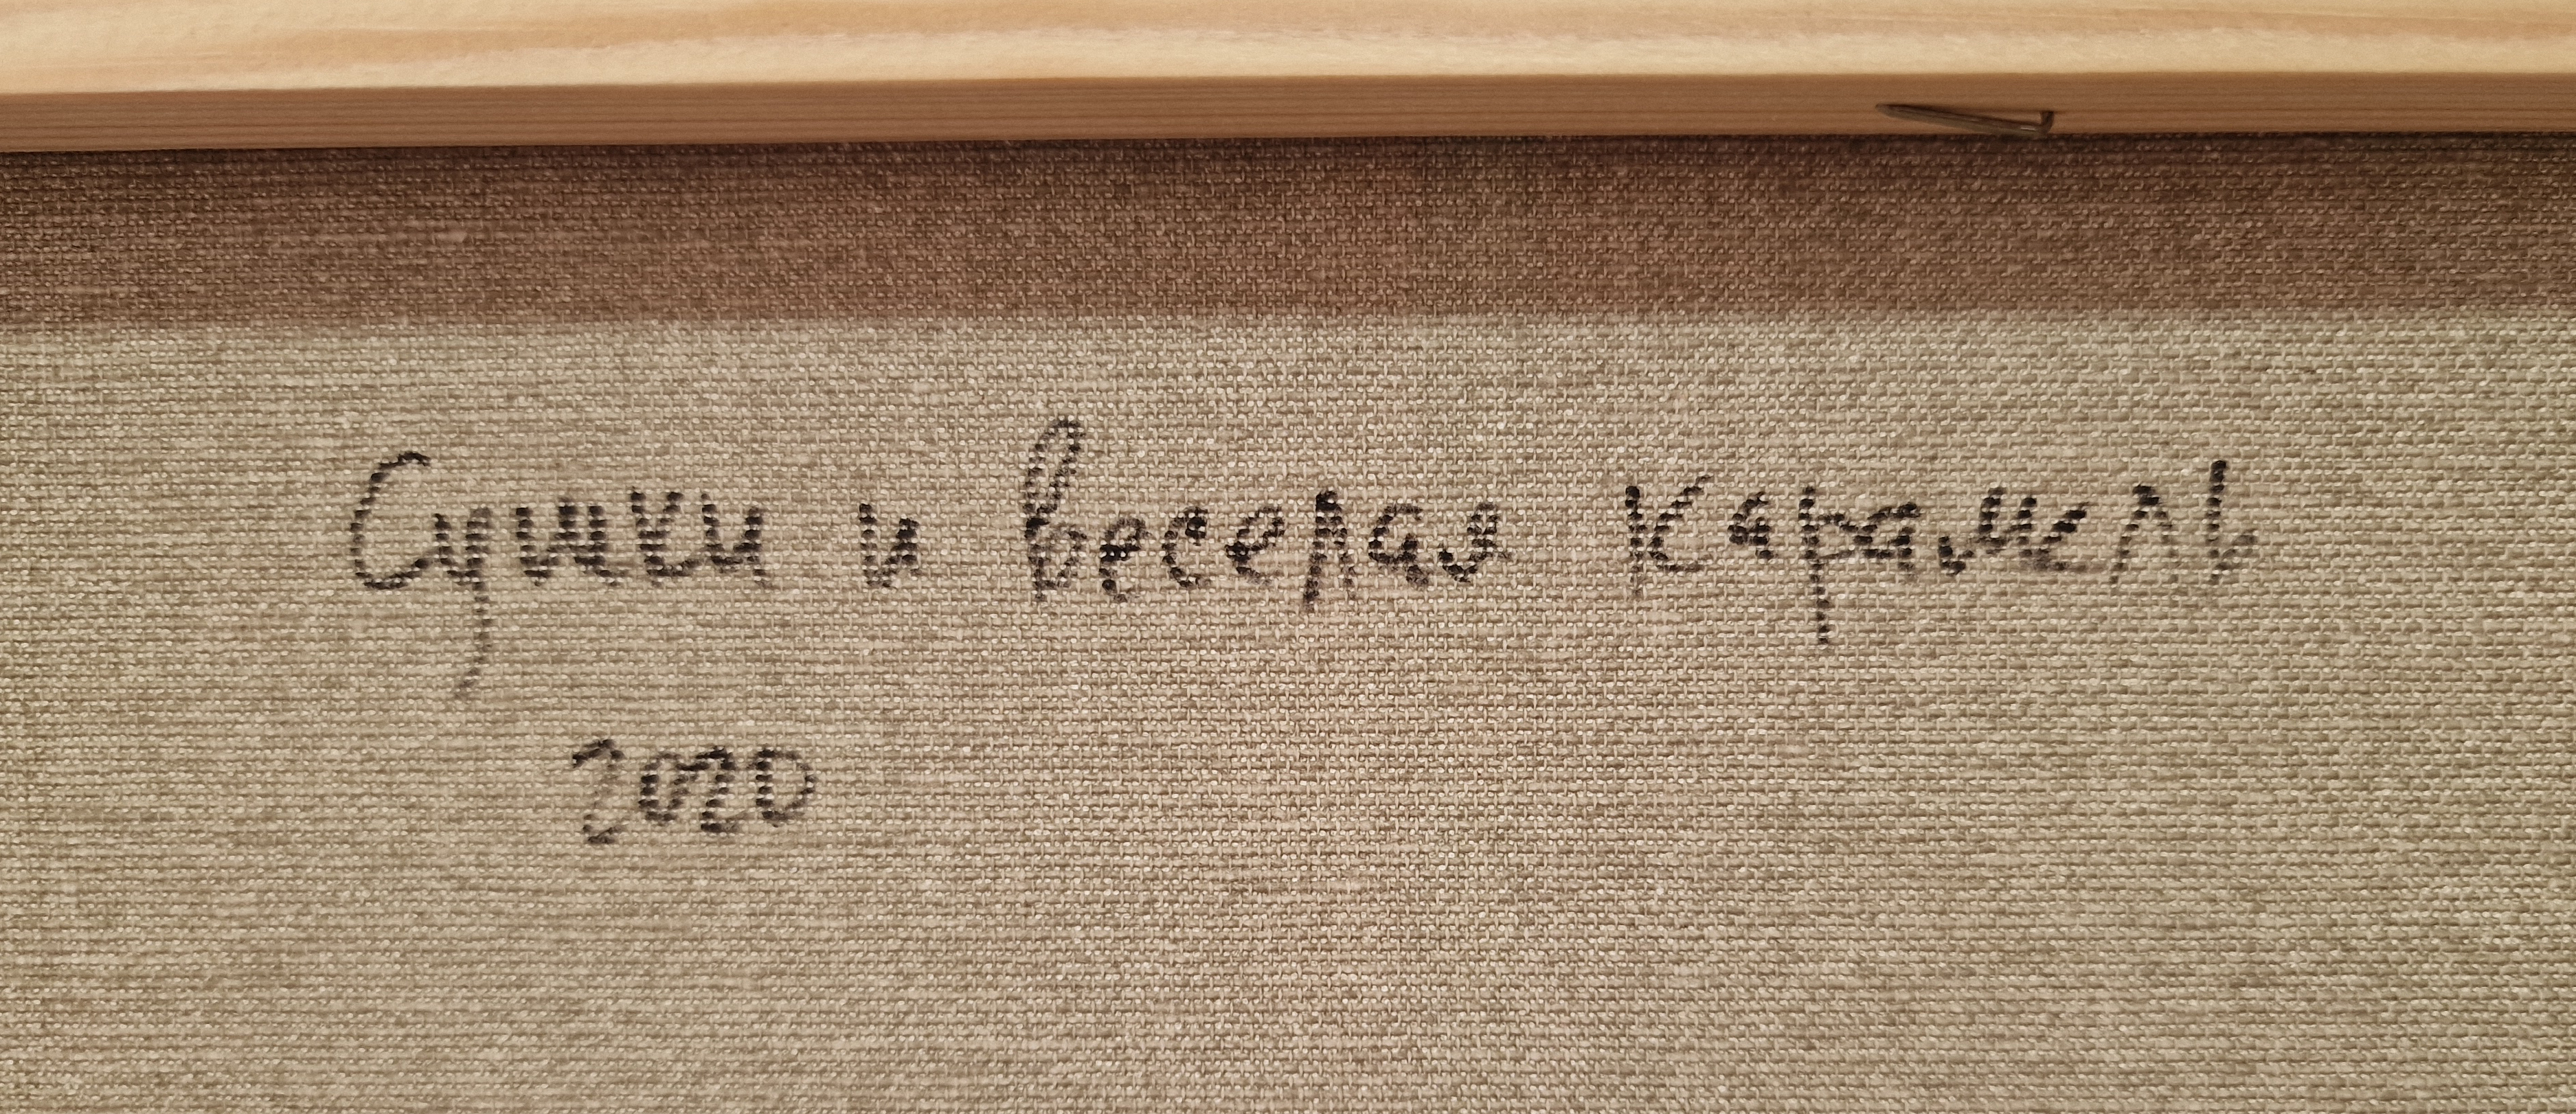 Сушки и веселая карамель
2020